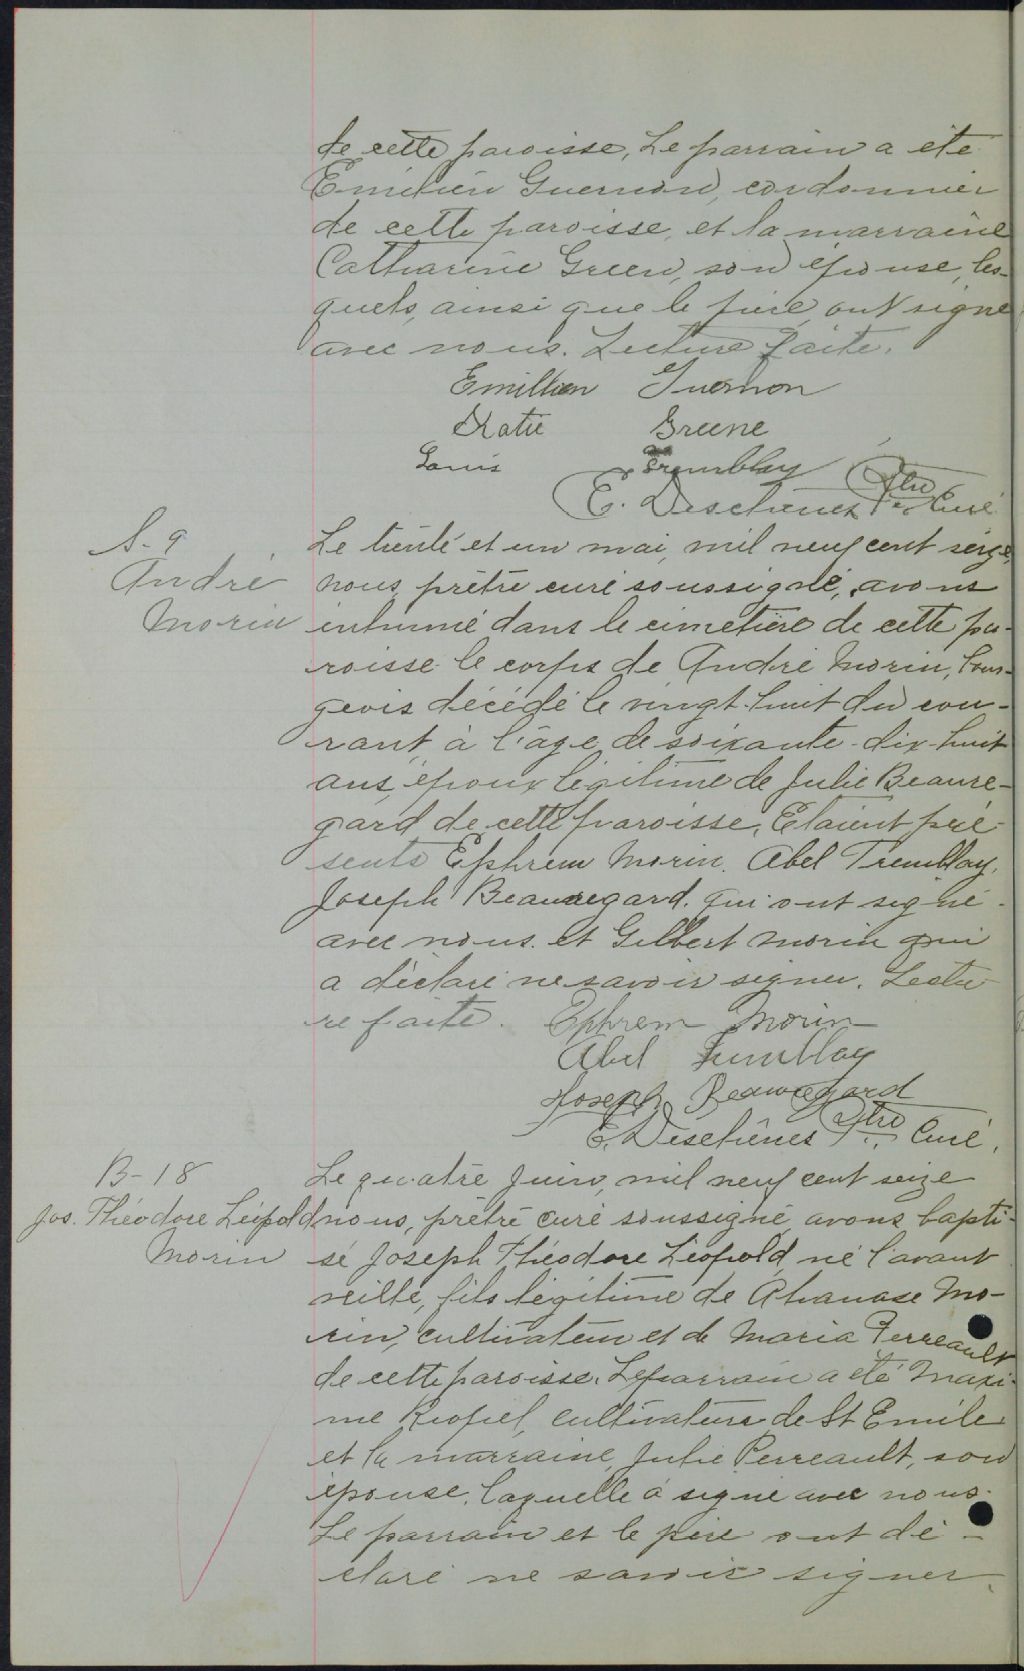 de cette paroisse, Le parrain a été
Emilien Guernon, cordonnier
de cette paroisse, et la marraine
Catharine Green, son épouse, les-
quels, ainsi que le père, ont signé
avec nous. Lecture faite.
Emillien Guernon
Katie Greene
Louis Tremblay
E. Deschènes Ptre Curé
S-9
André
Morin
Le trente et un mai, mil neuf cent seize,
nous, prêtre curé soussigné, avons
inhumé dans le cimetière de cette pa-
roisse le corps de André Morin, bour-
geois décédé le vingt-huit du cou-
rant, à l'âge de soixante-dix-huit
ans, époux légitime de Julie Beaure-
gard de cette paroisse. Etaient pré-
sents Ephrem Morin. Abel Tremblay,
Joseph Beauregard. qui ont signé
avec nous. et Gilbert Morin qui
a déclaré ne savoir signer. Lectu-
re faite. Ephrem Morin
Abel Tremblay
Joseph Beauregard
E. Deschènes Ptre Curé.
B-18
Jos. Théodore Léopold
Morin
Le quatre Juin, mil neuf cent seize
nous, prêtre curé soussigné, avons bapti-
sé Joseph Théodore Léopold, né l'avant
veille, fils légitime de Ahanase Mo-
rin, cultivateur et de Maria Perreault
de cette paroisse. Le parrain a été Maxi-
me Riopel, cultivateur de St Emile
et la marraine, Julie Perreault, son
épouse, laquelle a signé avec nous.
Le parrain et le père ont dé-
claré ne savoir signer.